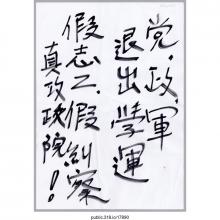 党.政.軍
退出學運
假志工.假糾察
真攻政院!
public.318.io/17890